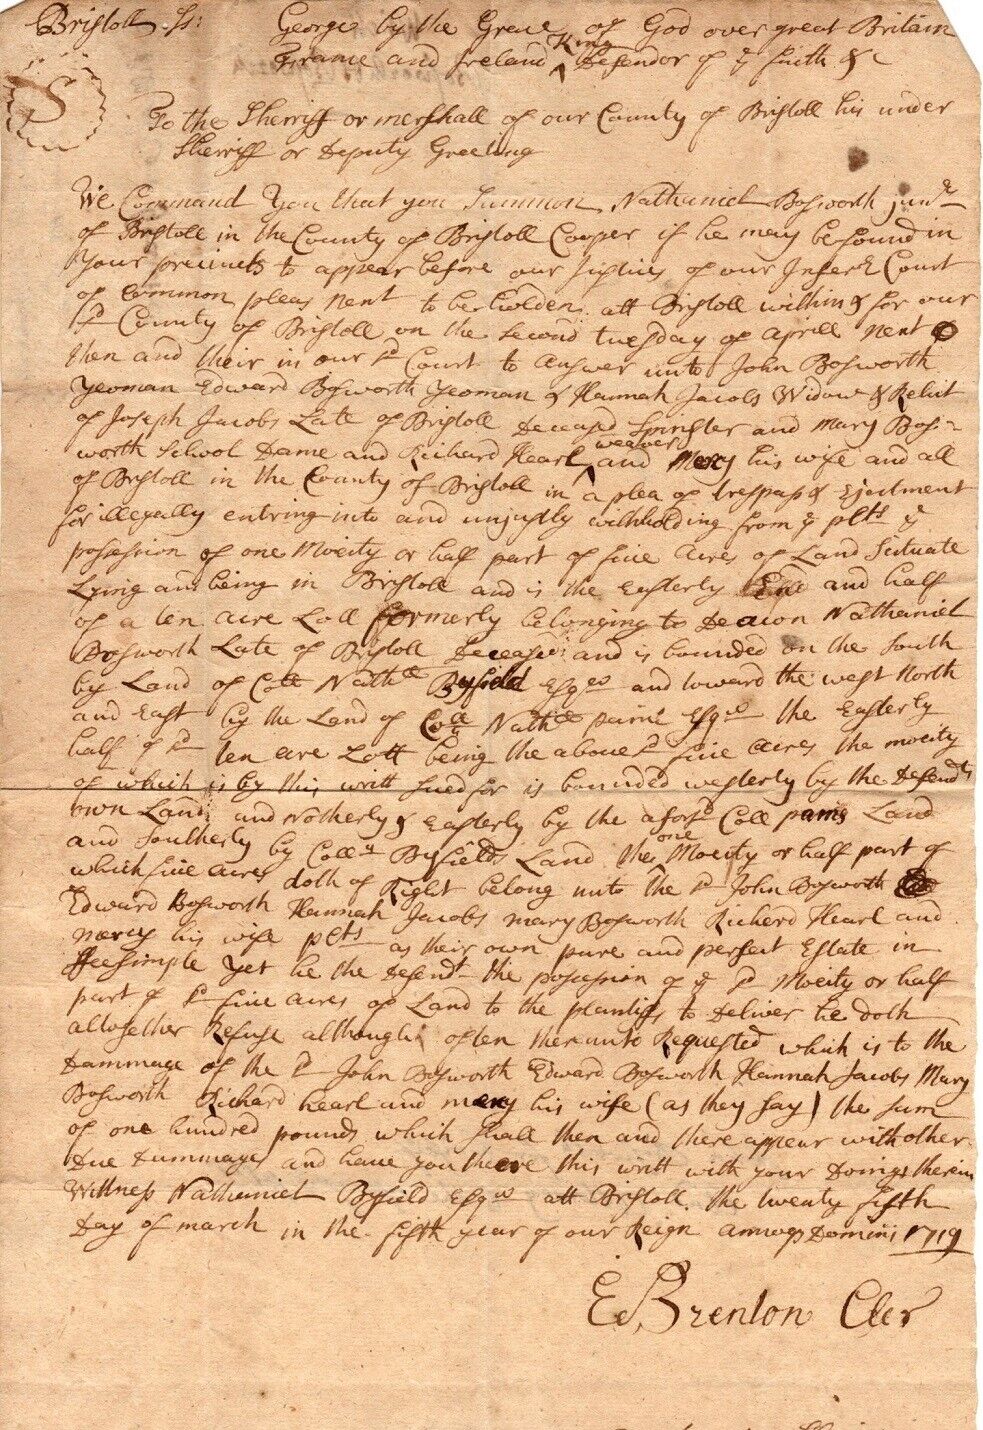 Bristoll Ss: George by the Grace of God over great Britain
France and Ireland King Defendor of ye faith &c
S
To the Sherriff or mershall of our County of Bristoll his under
Sherriff or Deputy Greeting
We Command You that you Summon Nathaniel Bosworth junr
of Bristoll in the County of Bristoll Cooper if he may be found in
Your precincts to appear before our Justices of our Inferr Court
of Common pleas next to be holden att Bristoll within & for our
sd County of Bristoll on the Second tuesday of Aprill next
then and their in our sd Court to answer unto John Bosworth
yeoman Edward Bosworth yeoman & Hannah Jacobs Widow & Relict
of Joseph Jacobs Late of Bristoll Deceased Spinster and Mary Bos=
worth School Dame and Richard Hearl weaver and Mercy his wife and all
of Bristoll in the County of Bristoll in a plea of trespass & Ejectment
for illegally entring into and unjustly withholding from ye plts ye
possession of one Moeity or half part of five acres of Land Situate
Lying and being in Bristoll and is the Easterly End and half
of a ten acre Lott formerly belonging to Deacon Nathaniel
Bosworth Late of Bristoll Deceased and is bounded on the South
by Land of Coll Nathll Byfield Esqr and toward the west North
and East by the Land of Coll Nathll paine Esqr the Easterly
half of sd ten acre Lott being the above sd five acres the moeity
of which is by this writt sued for is bounded westerly by the Defendts
own Land and Notherly & Easterly by the aforsd Coll pains Land
and Southerly by Coll Byfields Land the one Moeity or half part of
which five acres doth of Right belong unto the sd John Bosworth
Edward Bosworth Hannah Jacobs mary Bosworth Richard Hearl and
mercy his wife plts as their own pure and perfect Estate in
ffeesimple Yet he the Defendt the possession of ye sd Moeity or half
part of sd five acres of Land to the plantifs to Deliver he doth
altogether Refuse although often thereunto Requested which is to the
Dammage of the sd John Bosworth Edward Bosworth Hannah Jacobs Mary
Bosworth Richard hearl and mercy his wife (as they say) the sum
of one hundred pounds which shall then and there appear with other
due Dammages and have you there this writt with your Doings therein
Wittness Nathaniel Byfield Esqr att Bristoll the twenty fifth
Day of march in the fifth year of our Reign annoqe Domini 1719
Ed Brenton Cler